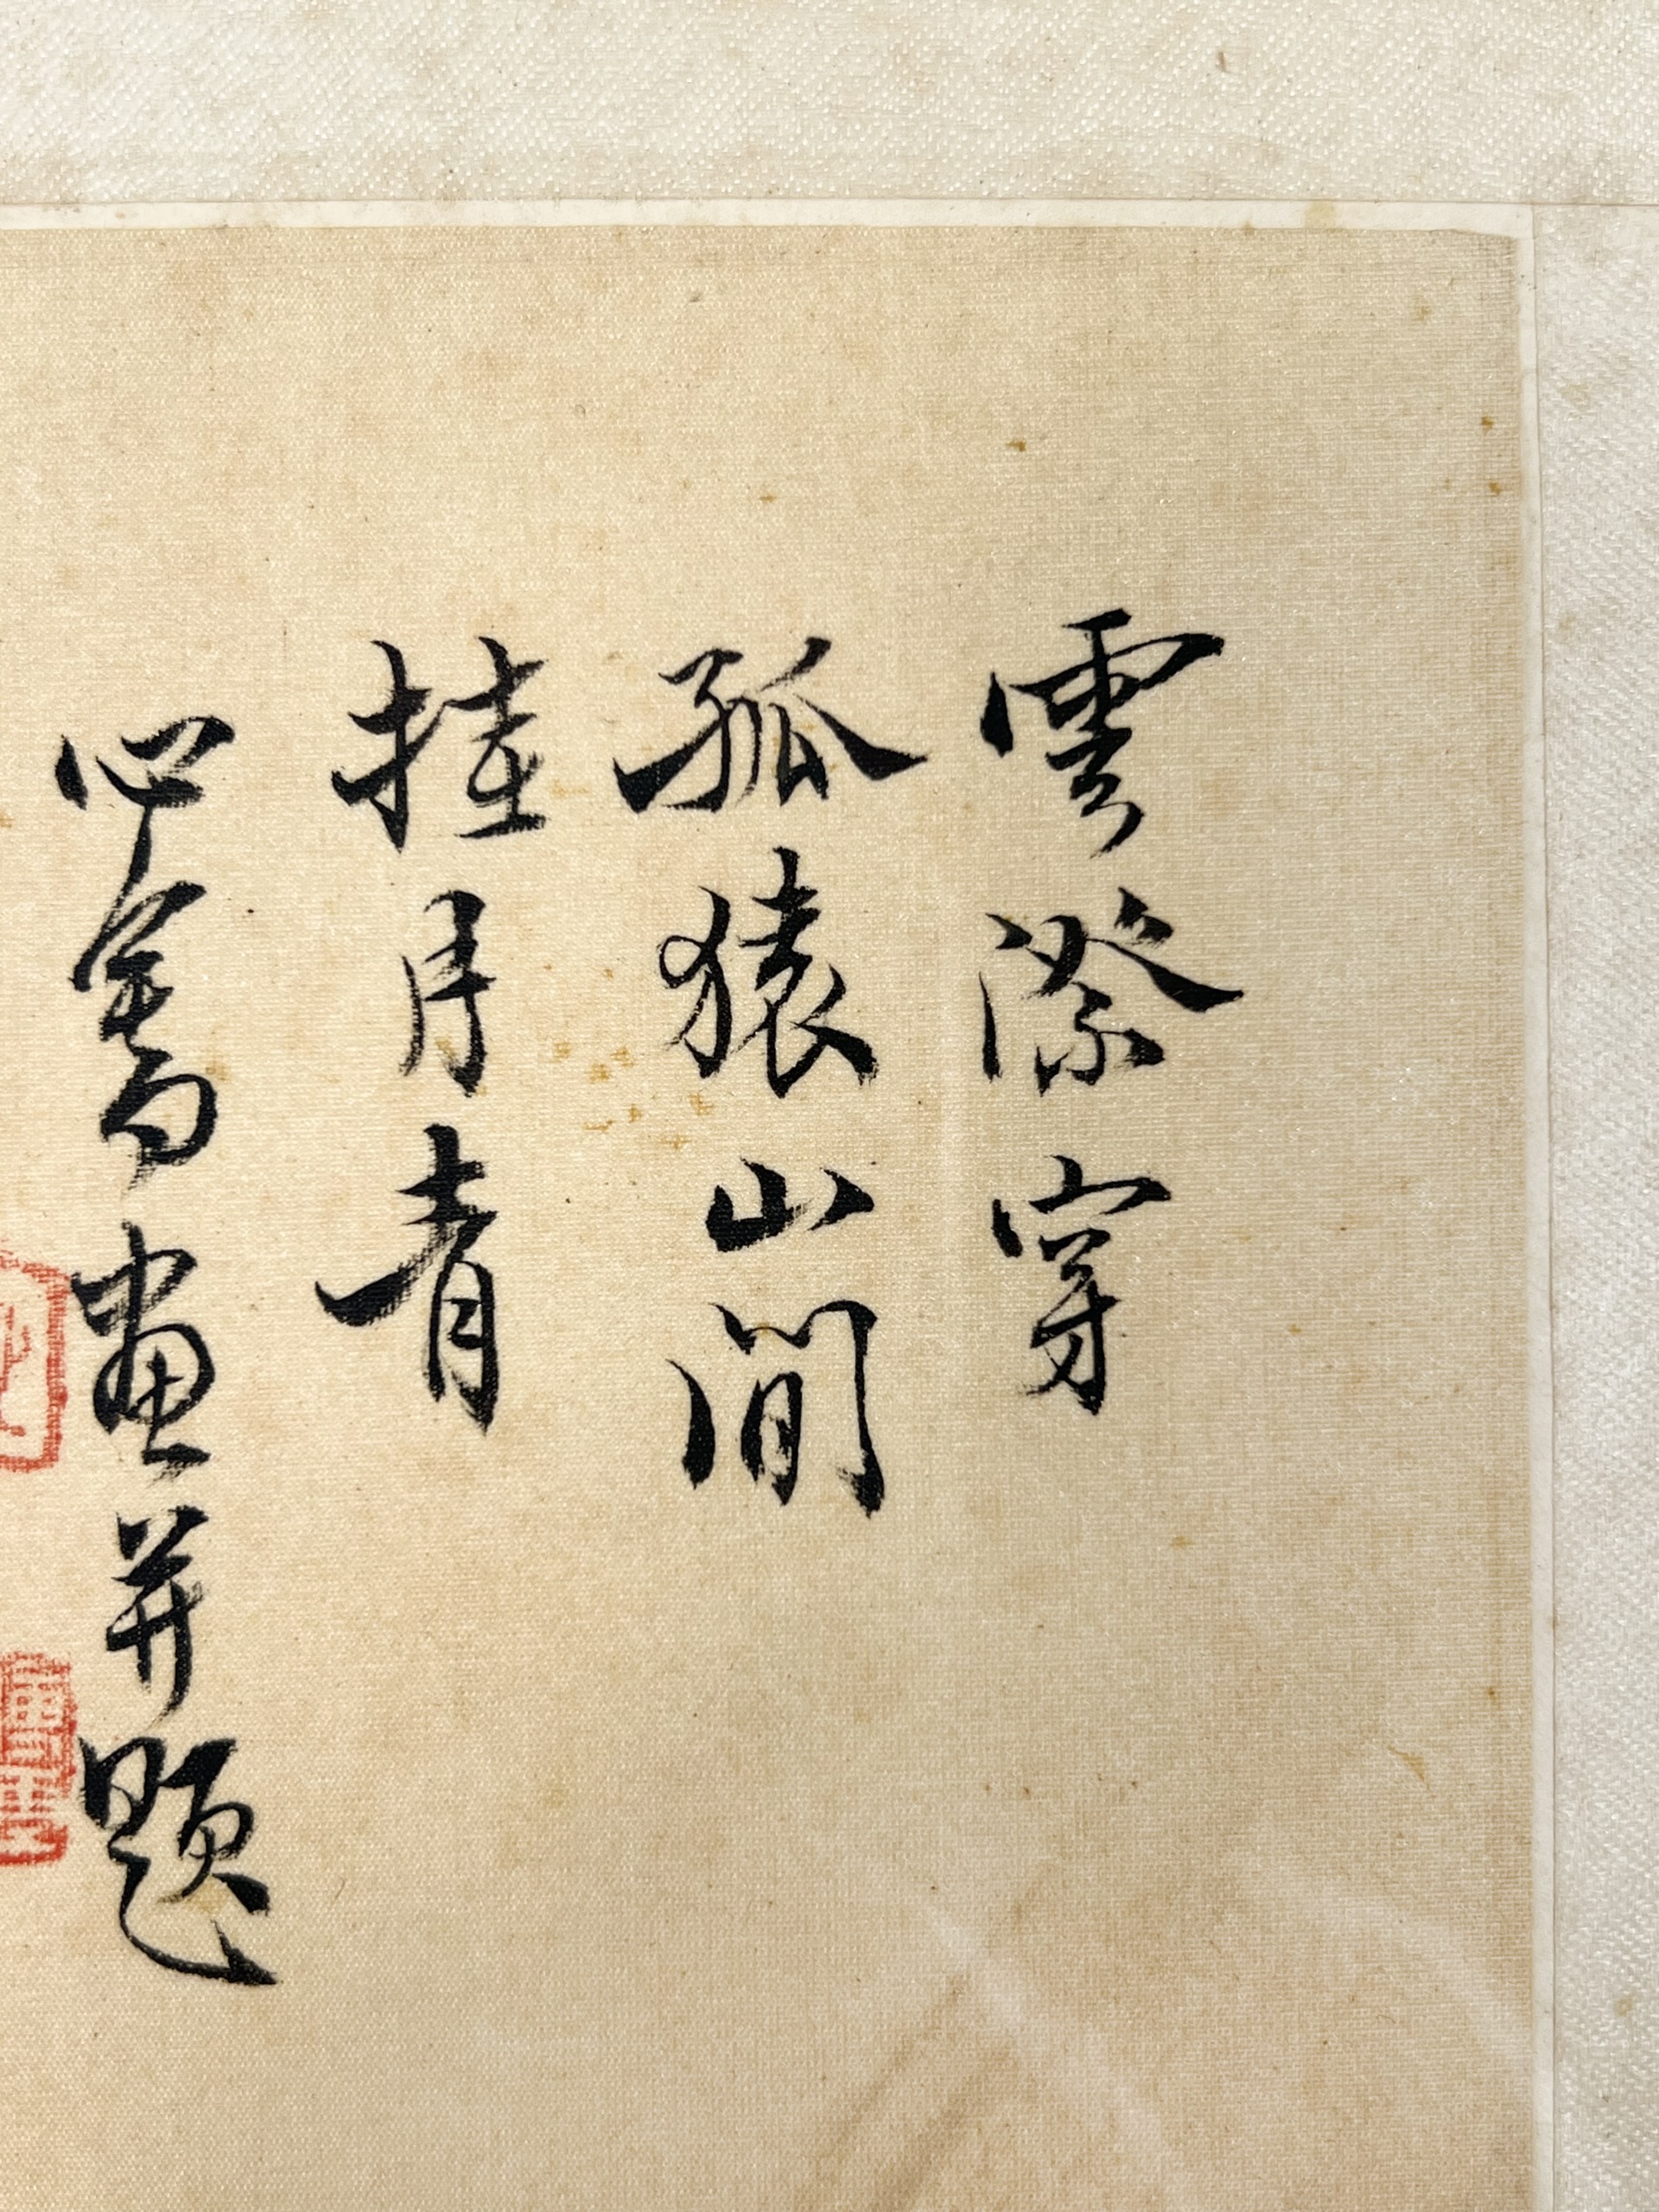 雲際穿
孤猿山間
挂月青
心畬畫并題